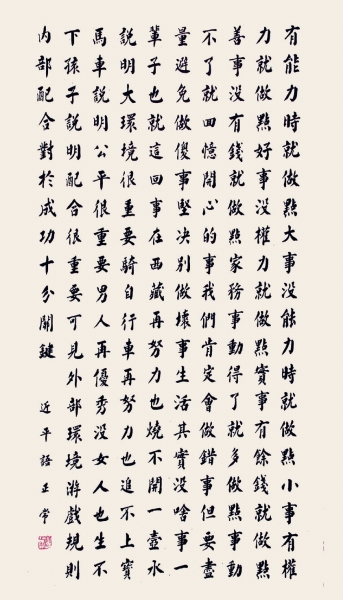 有能力時就做點大事没能力時就做點小事有權
力就做點好事没權力就做點實事有餘錢就做點
善事没有錢就做點家務事動得了就多做點事動
不了就回憶開心的事我們肯定會做錯事但要盡
量避免做傻事堅决别做壞事生活其實没啥事一
輩子也就這回事在西藏再努力也燒不開一壺水
説明大環境很重要騎自行車再努力也追不上寶
馬車説明公平很重要男人再優秀没女人也生不
下孩子説明配合很重要可見外部環境游戲規則
内部配合對於成功十分關鍵
近平語 正常